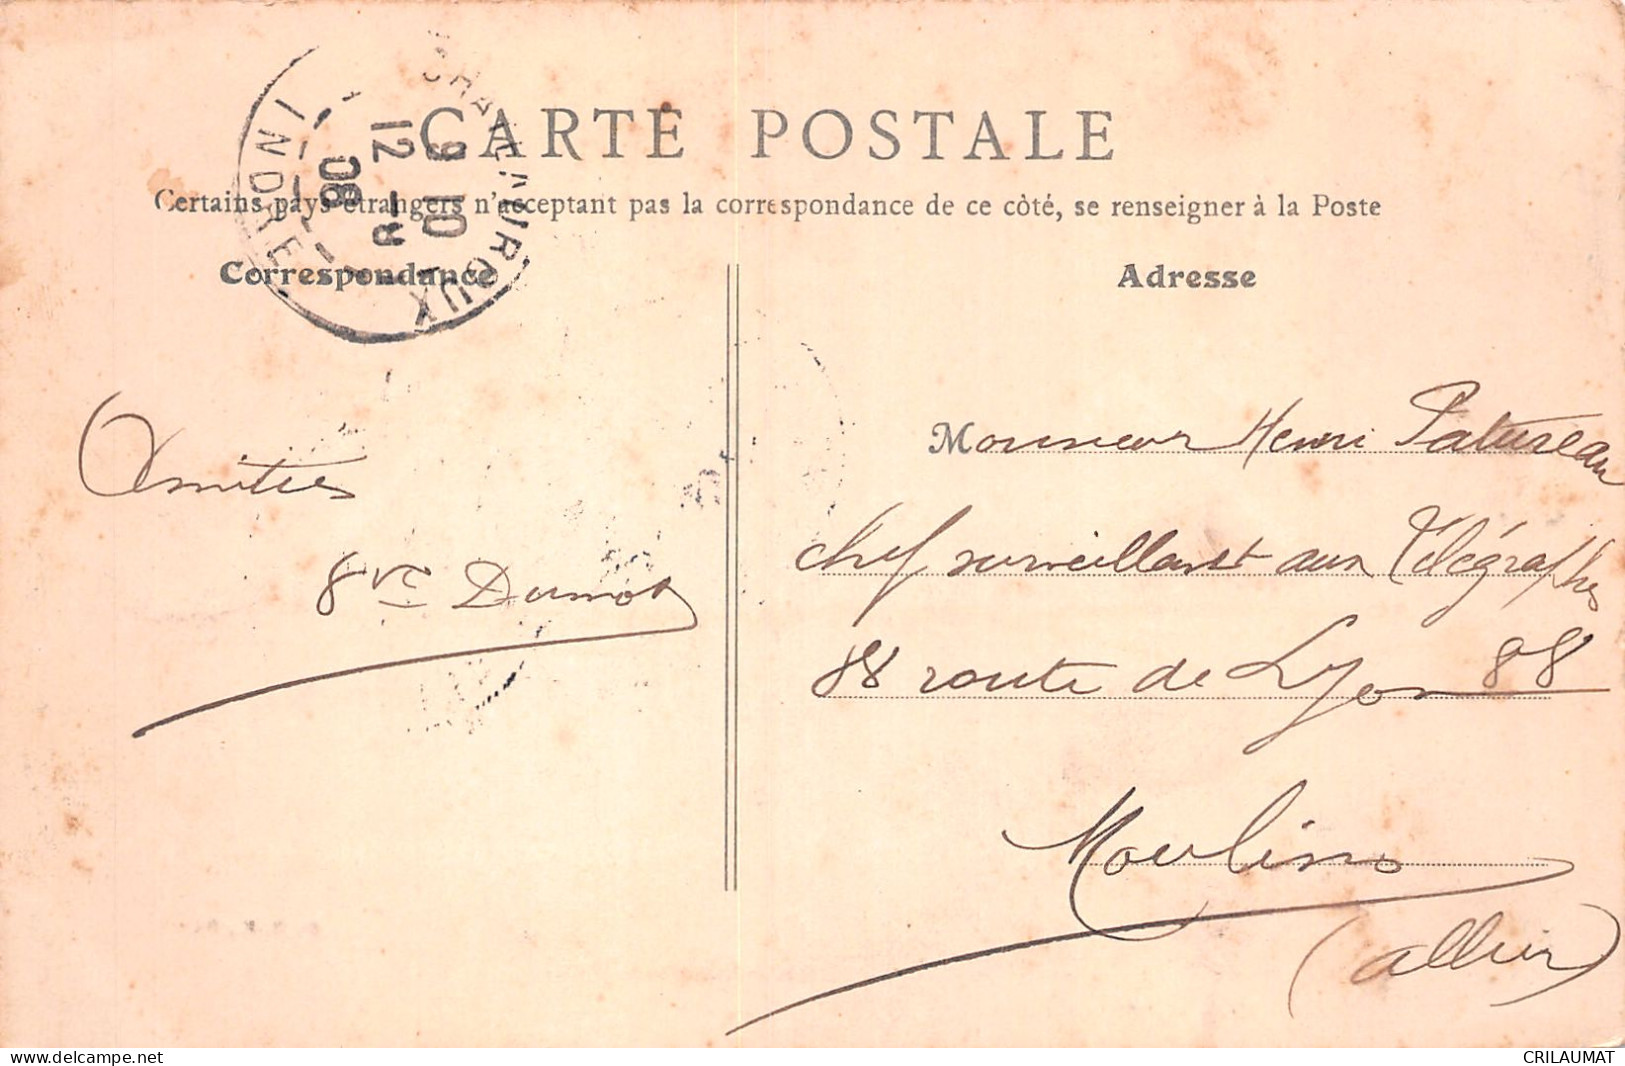 CARTE POSTALE
Certains pays étrangers n'acceptent pas la correspondance de ce côté, se renseigner à la Poste
Correspondance
Adresse
CHATEAUROUX
INDRE
9 10
12 -
08
Amitiés
Dumot
Monsieur Henri Patureau
chef surveillant aux Télégraphes
88 route de Lyon 88
Moulins
(Allier)
www.delcampe.net
CRILAUMAT